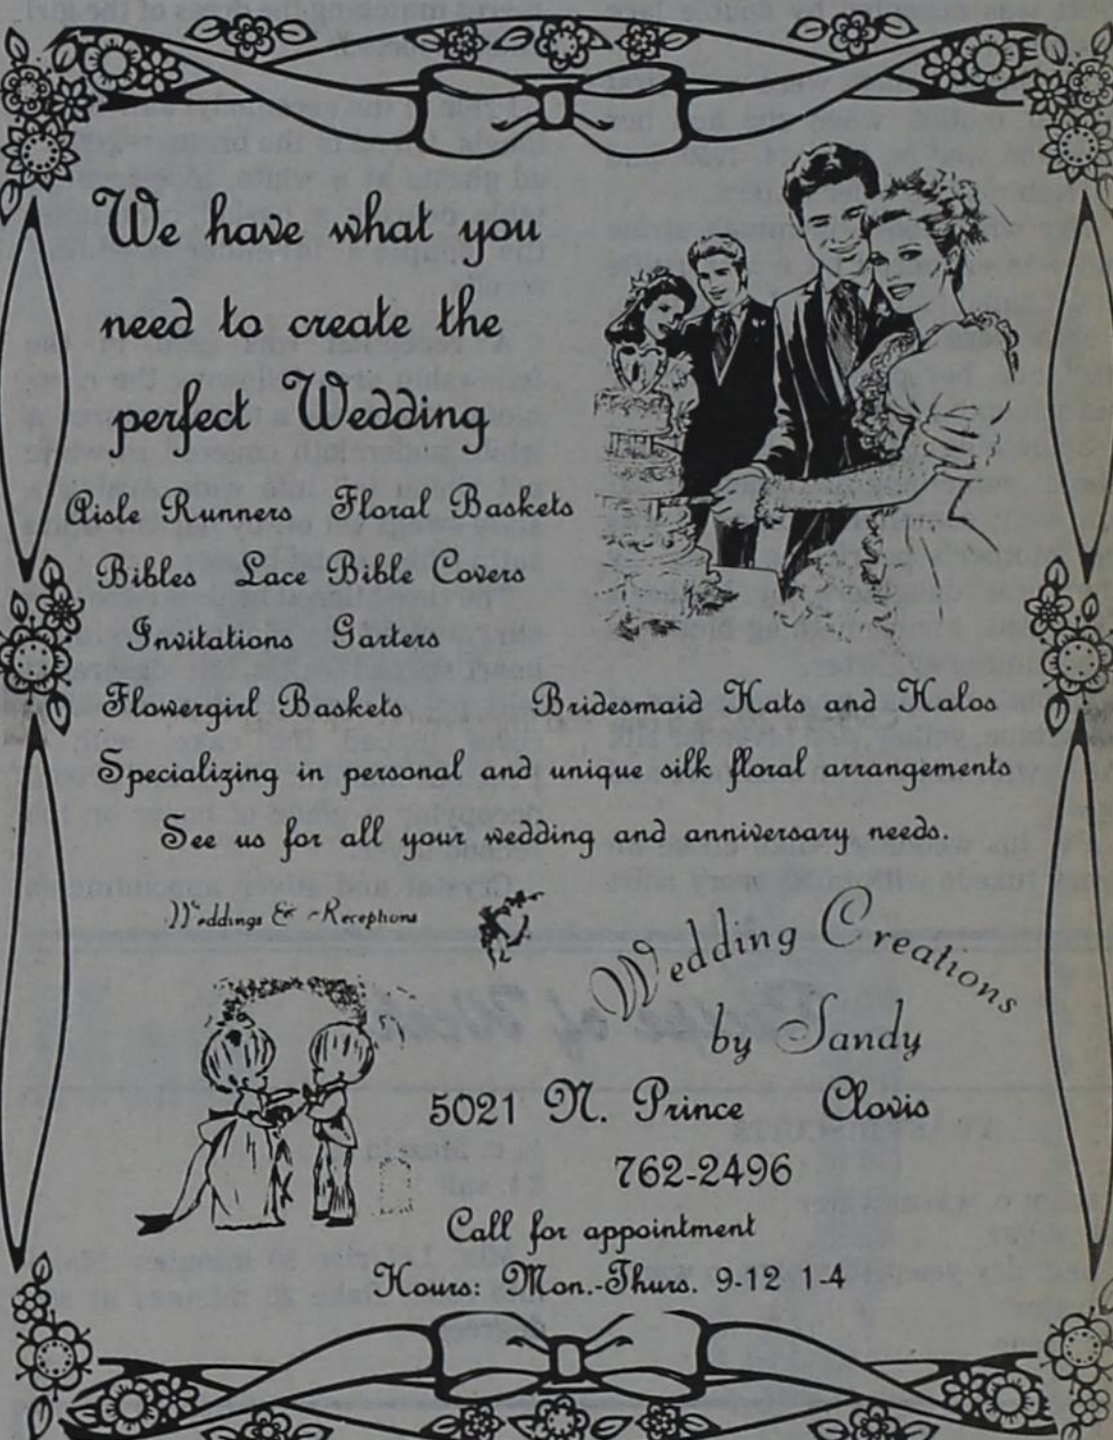 We have what you
need to create the
perfect Wedding
Aisle Runners Floral Baskets
Bibles Lace Bible Covers
Invitations Garters
Flowergirl Baskets Bridesmaid Hats and Halos
Specializing in personal and unique silk floral arrangements
See us for all your wedding and anniversary needs.
Weddings & Receptions
Wedding Creations
by Sandy
5021 N. Prince Clovis
762-2496
Call for appointment
Hours: Mon.-Thurs. 9-12 1-4